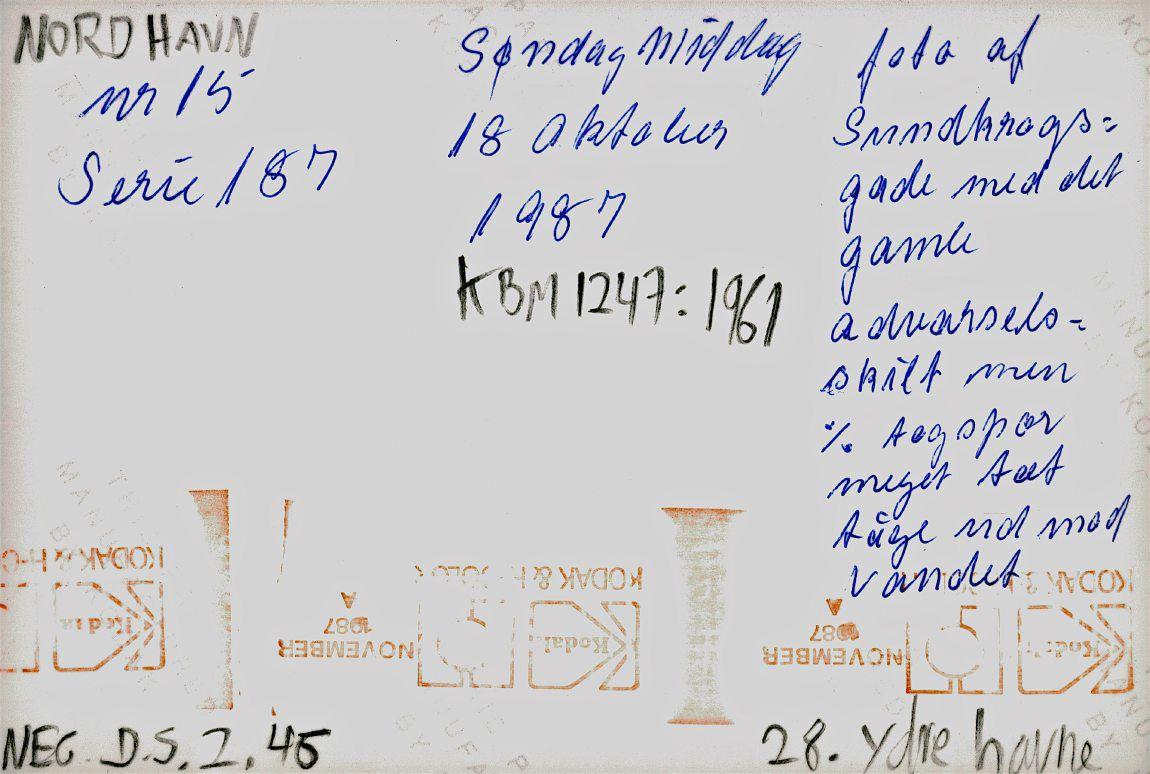 NORDHAVN
nr 15
Serie 187
Søndag Middag
18 Oktober
1987
KBM 1247:1961
foto af
Sundkrogs=
gade med det
gamle
advarsels=
skilt men
% togspor
meget tæt
tåge ud mod
vandet
KODAK & H-C
KODAK & H COLOR
KODAK
NOVEMBER
1987
NOVEMBER
1987
Kodak
Kodak
Kodak
NEG. D.S. 2. 45
28. Ydre havne